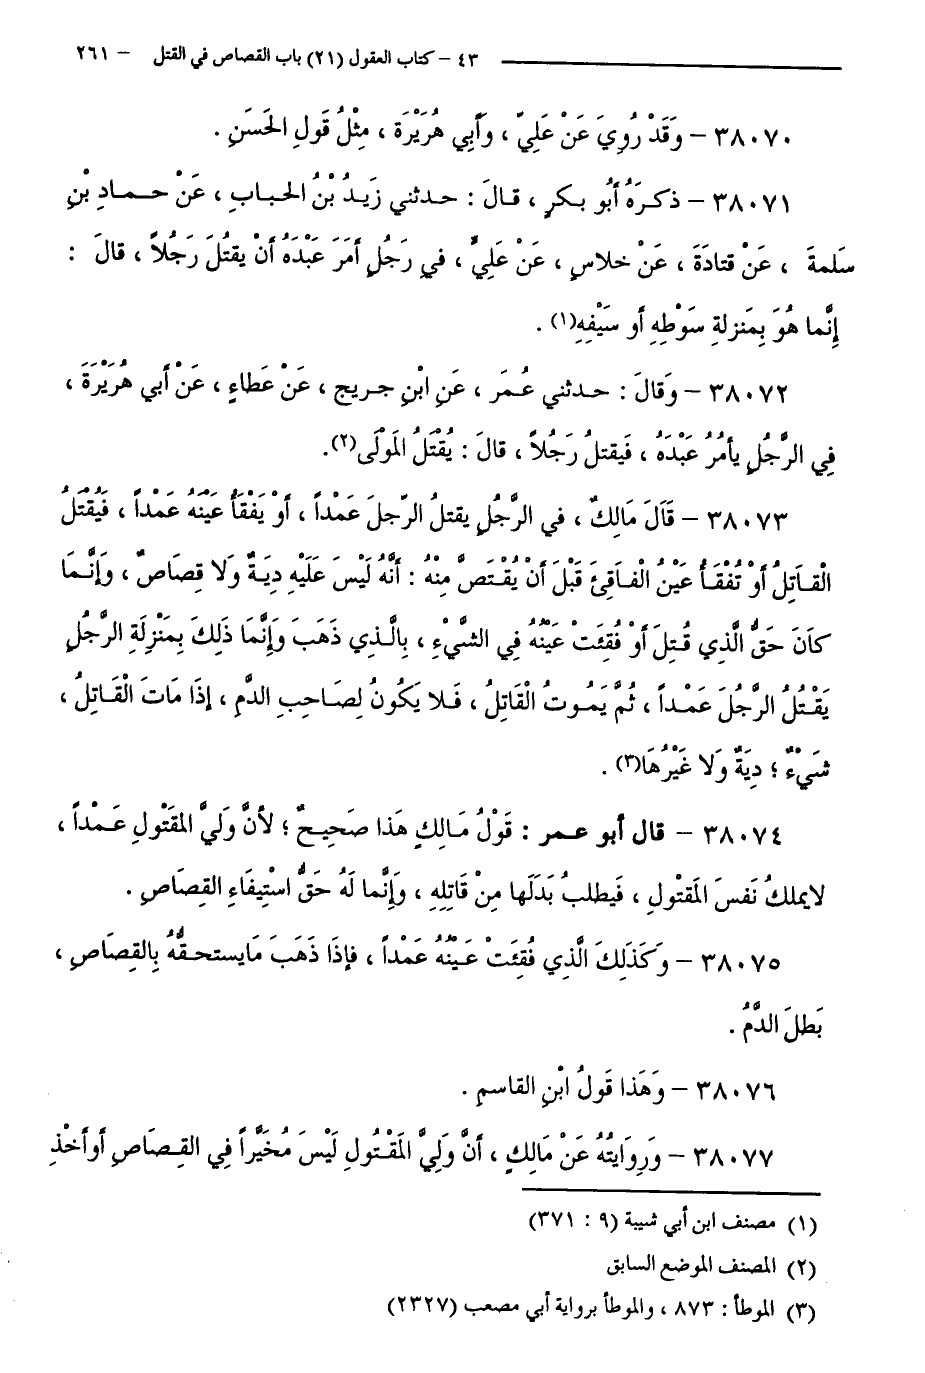 ٤٣ – كتاب العقول (٢١) باب القصاص في القتل – ٢٦١
٣٨٠٧٠ – وَقَدْ رُوِيَ عَنْ عَلِيٍّ ، وَأَبِي هُرَيْرَةَ ، مِثْلُ قَولِ الحَسَنِ .
٣٨٠٧١ – ذكرَهُ أَبُو بكرٍ ، قالَ : حدثني زَيدُ بْنُ الحبابِ ، عَنْ حمادِ بْنِ
سَلمةَ ، عَنْ قتادَةَ ، عَنْ خلاسٍ ، عَنْ عَلِيٍّ ، في رَجُلٍ أَمَرَ عَبْدَهُ أَنْ يقتلَ رَجُلاً ، قالَ :
إِنَّما هُوَ بِمَنزلةِ سَوْطِهِ أو سَيْفِهِ(١) .
٣٨٠٧٢ – وَقالَ : حدثني عُمَر ، عَنِ ابْنِ جريج ، عَنْ عَطَاءٍ ، عَنْ أبي هُرَيْرَةَ ،
فِي الرَّجُلِ يأمُرُ عَبْدَهُ ، فَيقتلُ رَجُلاً ، قالَ : يُقْتَلُ المَوْلَى(٢).
٣٨٠٧٣ – قَالَ مَالِكٌ ، في الرَّجُلِ يقتلُ الرَّجلَ عَمْداً ، أَوْ يَفْقَأُ عَيْنَهُ عَمْداً ، فَيُقْتَلُ
الْقَاتِلُ أَوْ تُفْقَأُ عَيْنُ الْفَاقِئَ قَبْلَ أَنْ يُقْتَصَّ مِنْهُ : أَنَّهُ لَيْسَ عَلَيْهِ دِيَةٌ وَلَا قِصَاصٌ ، وَإِنَّمَا
كَانَ حَقُّ الَّذِي قُتِلَ أَوْ فُقِئَتْ عَيْنُهُ فِي الشَّيْءِ ، بِالَّذِي ذَهَبَ وَإِنَّمَا ذَلِكَ بِمَنْزِلَةِ الرَّجُلِ
يَقْتُلُ الرَّجُلَ عَمْداً ، ثُمَّ يَمُوتُ الْقَاتِلُ ، فَلا يَكُونُ لِصَاحِبِ الدَّمِ ، إِذَا مَاتَ الْقَاتِلُ ،
شَيْءٌ ؛ دِيَةٌ وَلا غَيْرُهَا(٣) .
٣٨٠٧٤ – قال أبو عمر : قَوْلُ مَالِكٍ هَذا صَحِيحٌ ؛ لأَنَّ وَلِيَّ المقْتولِ عَمْداً ،
لايملكُ نَفسَ المَقتولِ ، فَيطلبُ بَدَلَها مِنْ قَاتِلِهِ ، وَإِنَّما لَهُ حَقُّ اسْتِيفَاءِ القصَاصِ .
٣٨٠٧٥ – وَكَذَلِكَ الَّذِي فُقِئَتْ عَيْنُهُ عَمْداً ، فإِذَا ذَهَبَ مَايستحقُّهُ بِالقِصَاصِ ،
بَطلَ الدَّمُ .
٣٨٠٧٦ – وَهَذا قَولُ ابْنِ القاسمِ .
٣٨٠٧٧ – وَرِوَايَتُهُ عَنْ مَالِكٍ ، أَنَّ وَلِيَّ المَقْتُولِ لَيْسَ مُخَيَّراً فِي القِصَاصِ أَوأَخْذِ
(١) مصنف ابن أبي شيبة (٩ : ٣٧١)
(٢) المصنف الموضع السابق
(٣) الموطأ : ٨٧٣ ، والموطأ برواية أبي مصعب (٢٣٢٧)